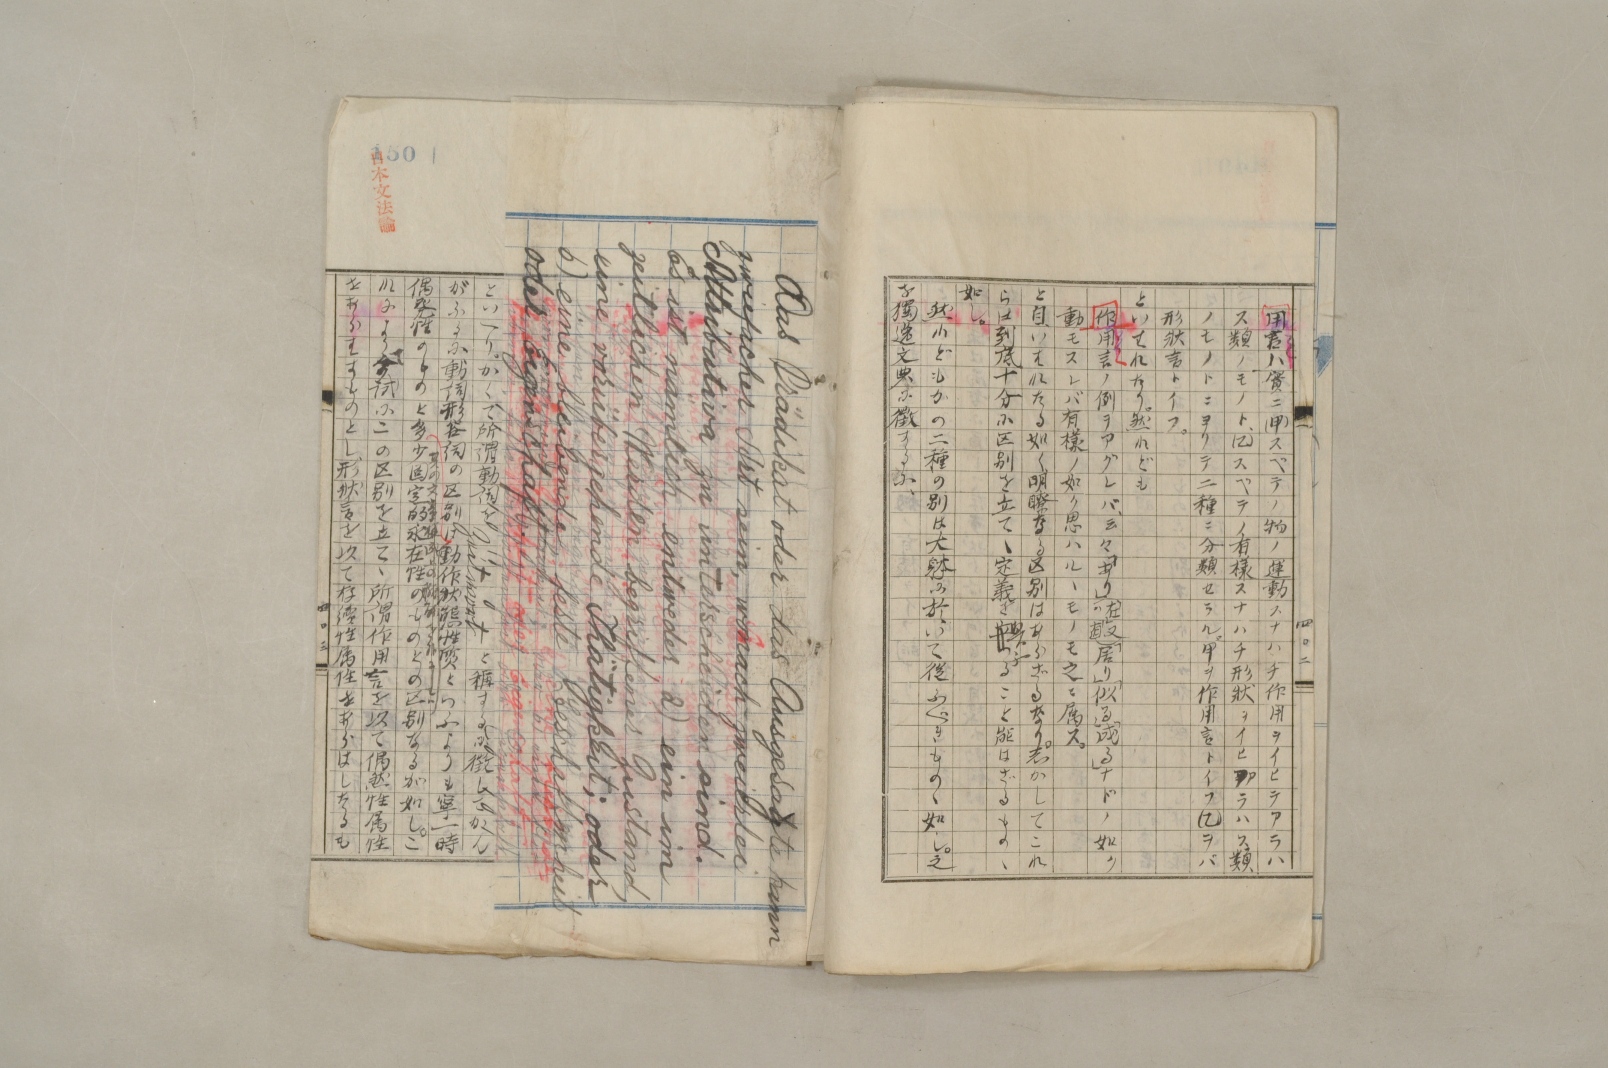 用言ハ實ニ(甲)スベテノ物ノ運動スナハチ作用ヲイヒテアラハ
ス類ノモノト、(乙)スベテノ有樣スナハチ形狀ヲイヒアラハス類
ノモノトニヨリテ二種ニ分類セラル。甲ヲ作用言トイフ(乙)ヲバ
形狀言トイフ。
といはれたり。然れども
作用言ノ例ヲアグレバ、云々「あり」「在」「居り」「似る」「或る」ナドノ如ク
動モスレバ有樣ノ如ク思ハルヽモノモ之ニ属ス。
と自いはれたる如く明瞭なる区別はあらざるなり。しかしてこれ
らは到底十分に区別を立て、定義を與ふることと能はざるものゝ
如し。
然れどもかの二種の別は大躰に於いて從ふべきものゝ如し。之
を獨逸文典に徵するに、
四〇二
150
日本文法論
Das Prädikat oder das Ausgesagte kann
zweifacher Art sein, wonach zweierlei
Attributiva zu unterscheiden sind.
Es ist nämlich entweder a) ein im
zeitlichen Werden begriffener Zustand
eine vorübergehende Thätigkeit; oder
b) eine bleibende, feste Beschaffenheit
oder Eigenschaft
といへり。かくて所謂動詞を Zeitwort と稱するに徵してかん
がふるに動詞形容詞の区別は動作狀態性質といふよりも寧一時
偶然性のものと多少固定的永在性のものとの区別なるが如し。こ
れによりて試に二の区別を立てゝ所謂作用言を以て偶然性属性
をあらはすものとし、形狀言を以て存續性属性をあらはしたるも
四〇三